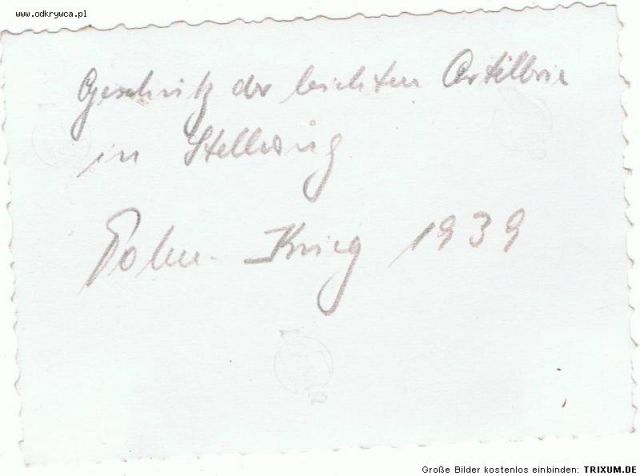 www.odkrywca.pl
Geschütz der leichten Artillerie
in Stellung
Polen. Krieg 1939
Große Bilder kostenlos einbinden: TRIXUM.DE